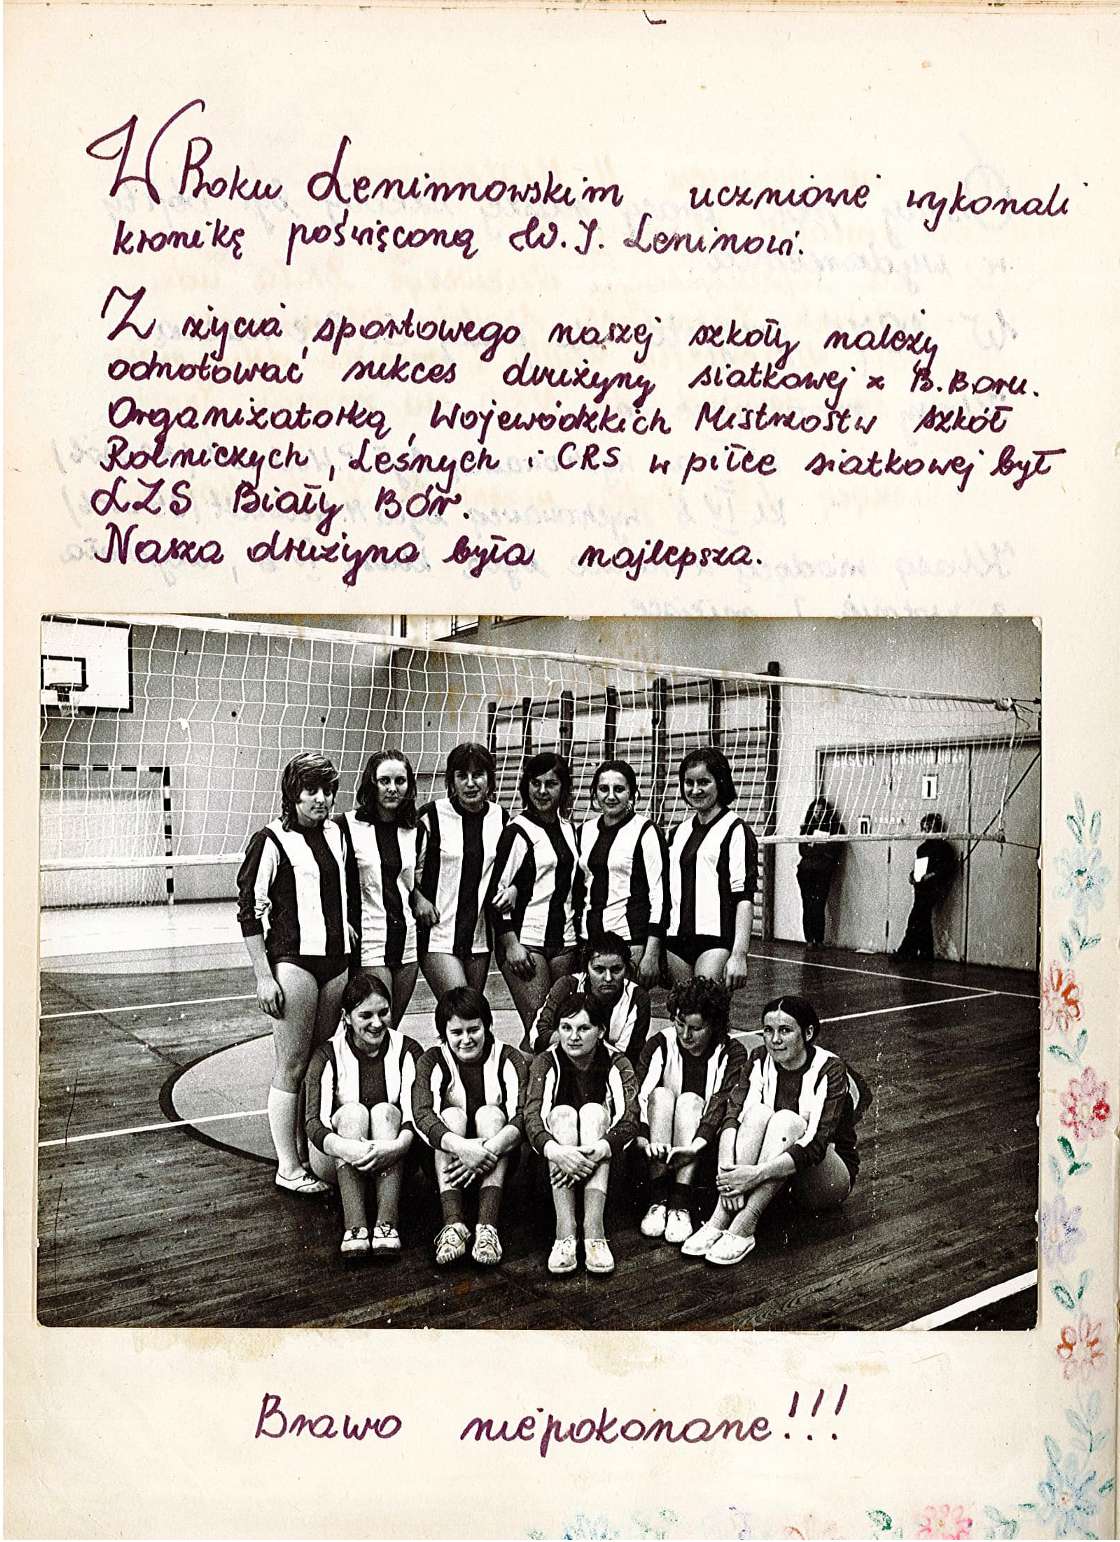 W Roku Leninnowskim uczniowie wykonali
kronikę poświęconą W. I. Leninowi.
Z życia sportowego naszej szkoły należy
odnotować sukces drużyny siatkowej z B. Boru.
Organizatorką Wojewódzkich Mistrzostw szkół
Rolniczych, Leśnych i CRS w piłce siatkowej był
LZS Biały Bór.
Nasza drużyna była najlepsza.
Brawo niepokonane!!!